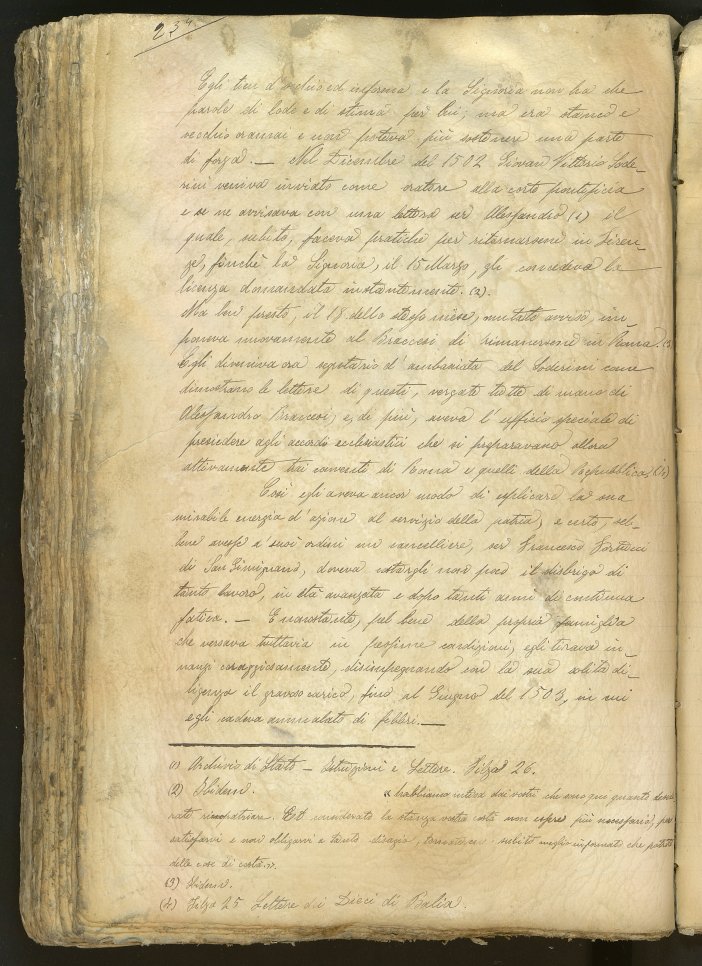 234
Egli tien d'occhio ed informa e la Signoria non ha che
parole di lode e di stima per lui; ma era stanco e
vecchio oramai e non poteva più sostenere una parte
di forza. — Nel Dicembre del 1502 Giovan Vittorio Sode-
rini veniva inviato come oratore alla corte pontificia
e se ne avvisava con una lettera ser Alessandro (1) il
quale, subito, faceva pratiche per ritornarsene in Firen-
ze, finchè la Signoria, il 15 Marzo, gli concedeva la
licenza domandata instantemente. (2).
Ma ben presto, il 18 dello stesso mese, mutato avviso, im-
poneva nuovamente al Braccesi di rimanersene in Roma. (3
Egli diveniva ora segretario d'ambasciata del Soderini come
dimostrano le lettere di questi, vergate tutte di mano di
Alessandro Braccesi, e, di più, aveva l'ufficio speciale di
presiedere agli accordi ecclesiastici che si preparavano allora
attivamente trai conventi di Roma e quelli della Repubblica. (4)
Così egli aveva ancor modo di esplicare la sua
mirabile energia d'azione al servizio della patria, e certo, seb-
bene avesse a' suoi ordini un cancelliere, ser Francesco Fortucci
da San Gimignano, doveva costargli non poco il disbrigo di
tanto lavoro, in età avanzata e dopo tanti anni di continua
fatica. — E nonostante, pel bene della propria famiglia
che versava tuttavia in pessime condizioni, egli tirava in-
nanzi coraggiosamente, disimpegnando con la sua solita di-
ligenza il gravoso carico, fino al Giugno del 1503, in cui
egli cadeva ammalato di febbri. —
(1) Archivio di Stato — Istruzioni e Lettere. Filza 26.
(2) Ibidem. "habbiamo intesa dai vostri che sono qui quanto
Et considerato la stanza vostra costà non essere più necessaria, per
satisfarvi e non obligarvi a tanto disagio, subito meglio informato che
delle cose di costà".
(3) Ibidem.
(4) Filza 25 Lettere dei Dieci di Balia.